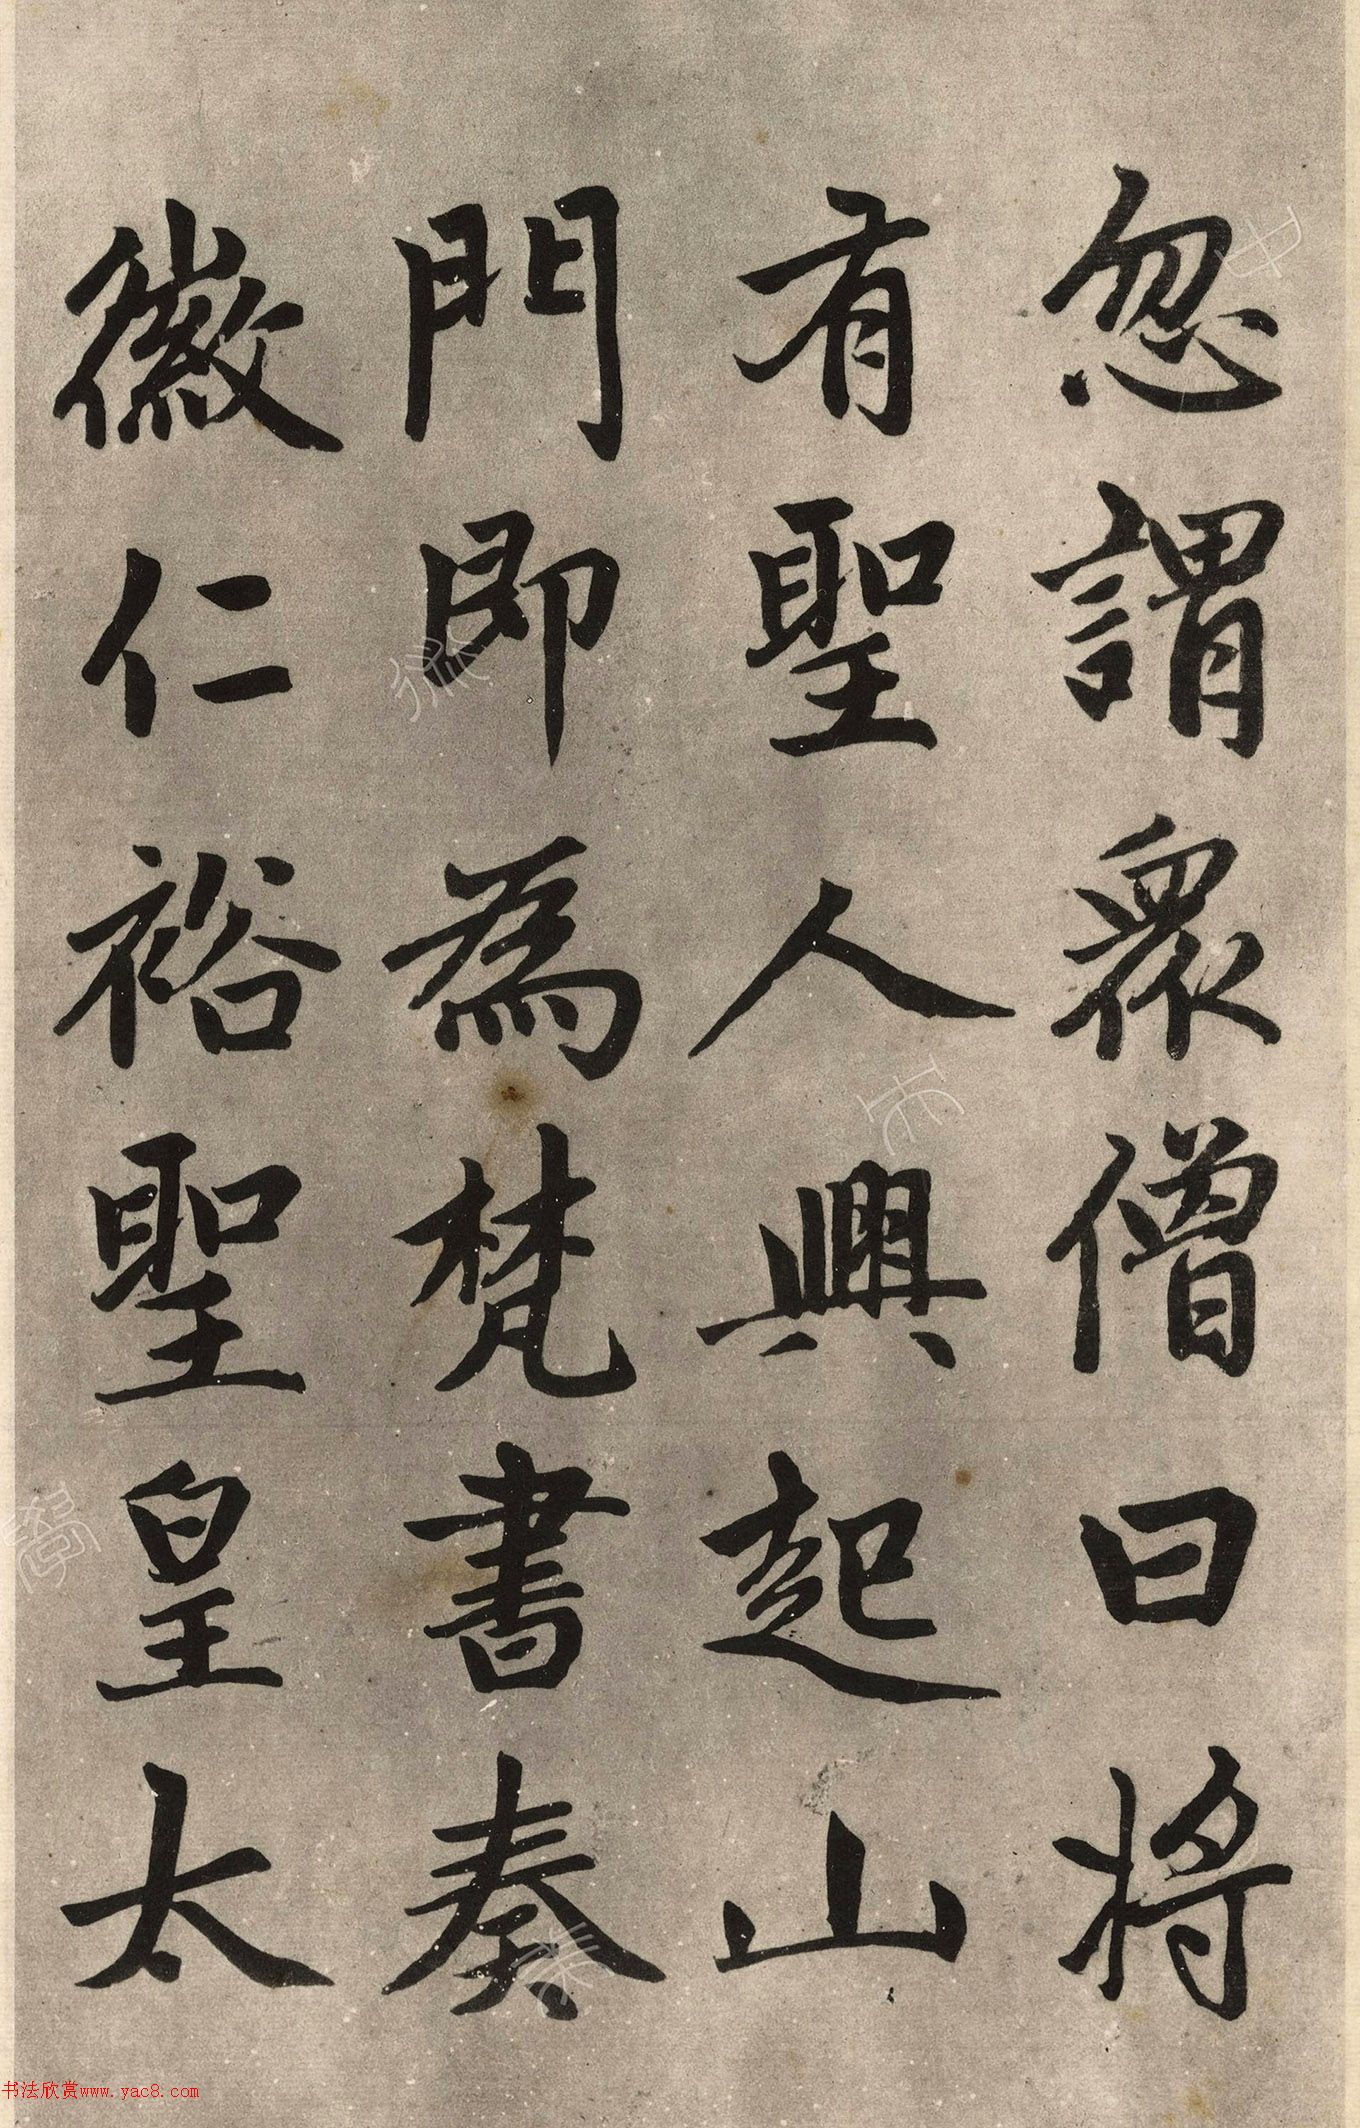 忽謂眾僧曰將
有聖人興起山
門即為梵書奏
徽仁裕聖皇太
书法欣赏www.yac8.com